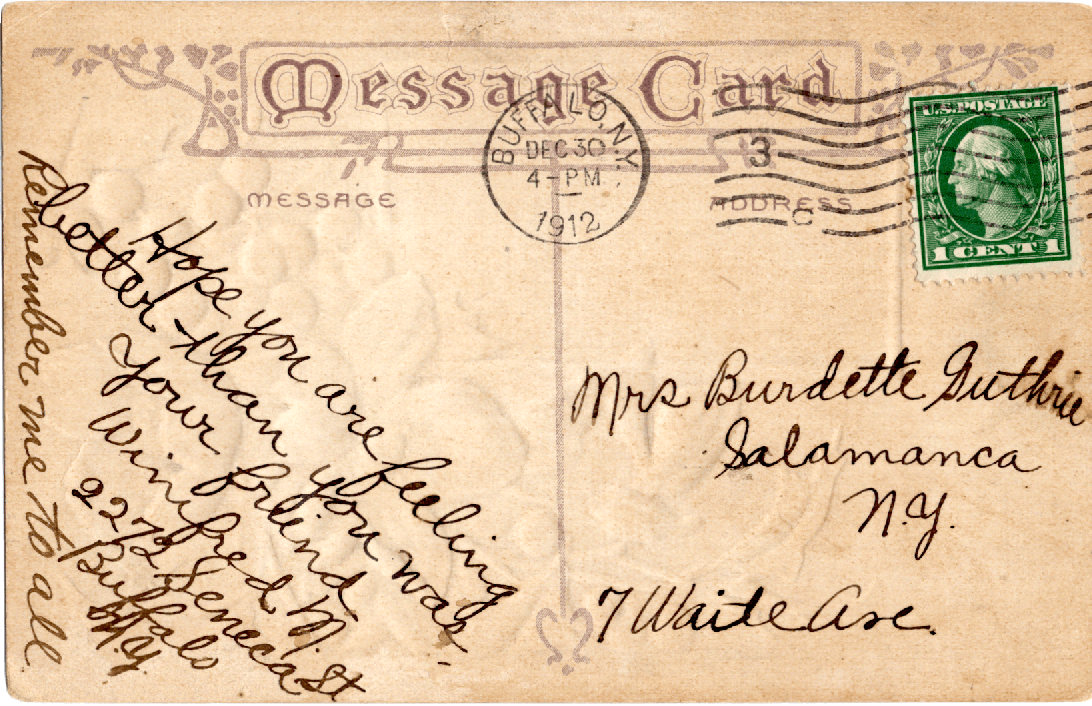 Message Card
BUFFALO, N.Y.
DEC 30
4-PM
1912
3
C
U.S. POSTAGE
1 CENT 1
MESSAGE
ADDRESS
Hope you are feeling
better than you was.
Your friend
Winifred N.
2272 Seneca St
Buffalo
N.Y.
Remember me to all
Mrs Burdette Guthrie
Salamanca
N.Y.
7 Waite Ave.